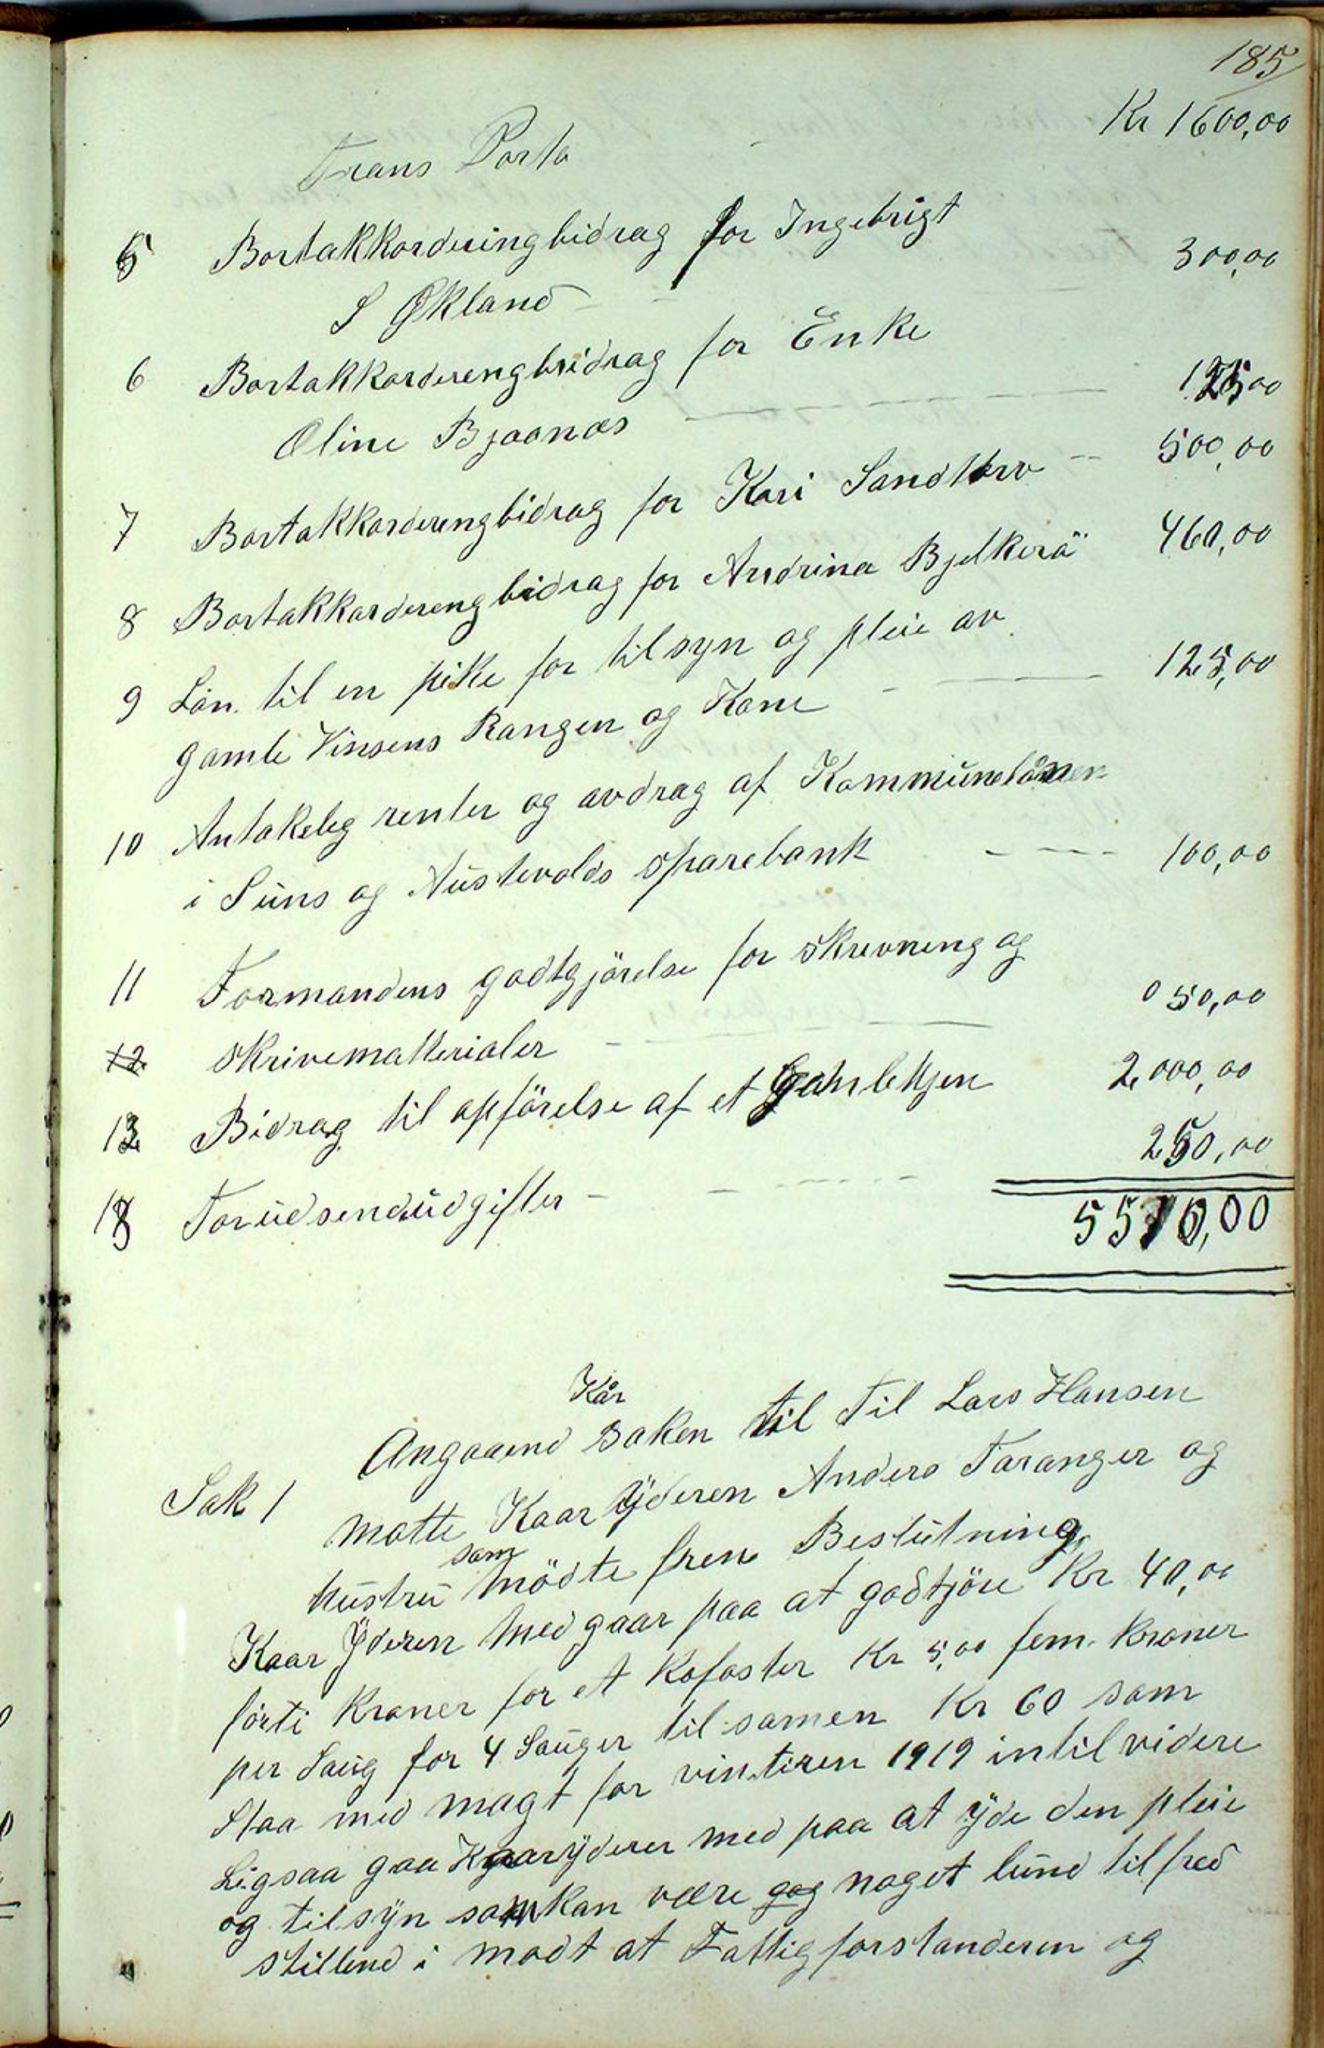 185
Kr 1600,00
Trans Porto
5 Bortakkorderingbidrag for Ingebrigt
S Økland 300,00
6 Bortakkorderengbridrag for Enke
Oline Bjaanæs 125,00
7 Bortakkorderengbidrag for Kari Sandtorv 500,00
8 Bortakkorderengbidrag for Andrina Bjelkerö 460,00
9 Lön til en pike for tilsyn og pleie av
gamle Vinsens Rangen og Kone 125,00
10 Antakeleg renter og avdrag af Kommunelånen
i Suns og Austevolds sparebank 100,00
11 Formandens godtgjörelse for skrevneng og
12 skrivematterialer 50,00
12 Bidrag til opförelse af et Gamlehjen 2,000,00
13 Forudsendudgifter 250,00
5510,00
Kår
Angaaend saken til Til Lars Hansen
Sak 1 møtte Kaar Yderen Anders Taranger og
som
hustru mödte frem Beslutning
Kaar Yderen med gaar paa at godtjöre Kr 40,00
förti kroner for et Kofoster Kr 5,00 fem kroner
per Saug for 4 Sauger til samen Kr 60 som
Staa med magt for vinteren 1919 intil videre
Ligsaa gaa Kaaryderer med paa at yde den pleie
og tilsyn som kan være gog noget lund tilfred
stillend i modt at Fattigforstanderen og